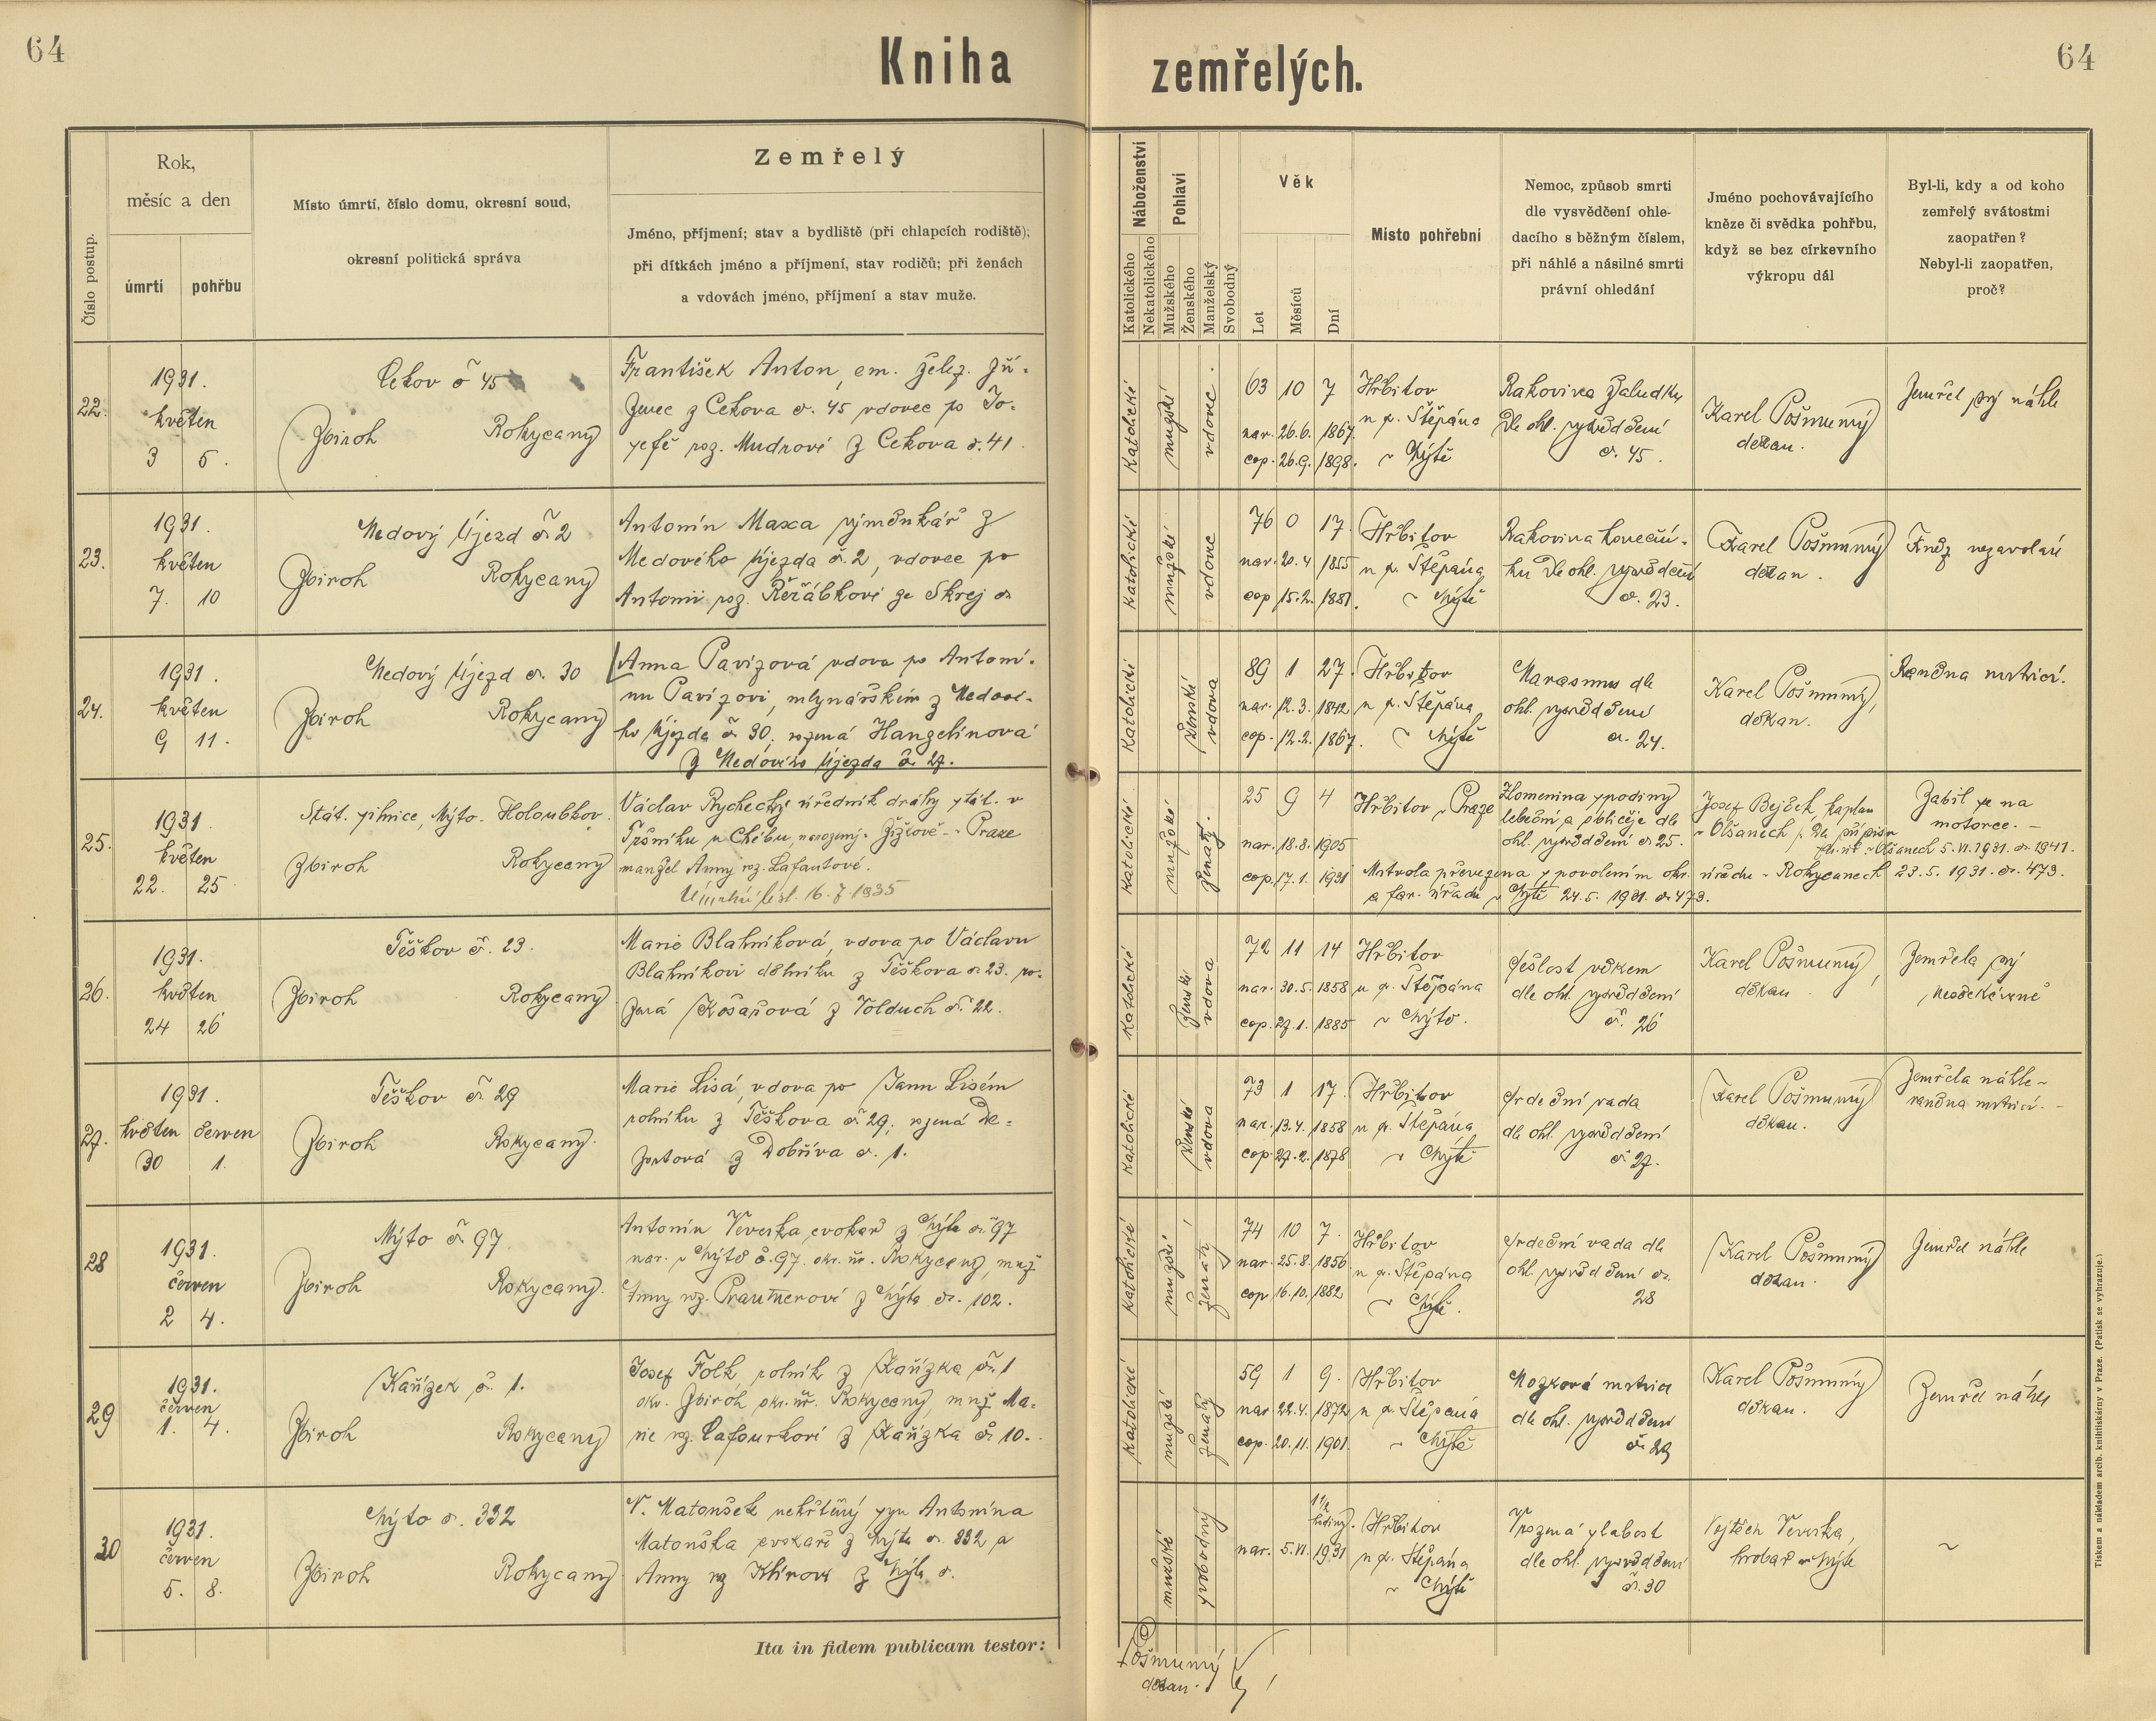 64
Kniha zemřelých.
64
Číslo postup.
Rok,
měsíc a den
úmrtí
pohřbu
Místo úmrtí, číslo domu, okresní soud,
okresní politická správa
Zemřelý
Jméno, příjmení; stav a bydliště (při chlapcích rodiště);
při dítkách jméno a příjmení, stav rodičů; při ženách
a vdovách jméno, příjmení a stav muže.
Náboženství
Katolického
Nekatolického
Pohlaví
Mužského
Ženského
Manželský
Svobodný
Věk
Let
Měsíců
Dní
Místo pohřební
Nemoc, způsob smrti
dle vysvědčení ohle-
dacího s běžným číslem,
při náhlé a násilné smrti
právní ohledání
Jméno pochovávajícího
kněze či svědka pohřbu,
když se bez církevního
výkropu dál
Byl-li, kdy a od koho
zemřelý svátostmi
zaopatřen?
Nebyl-li zaopatřen,
proč?
22.
1931.
květen
3 5.
Cekov č 45
Zbiroh Rokycany
František Anton, em. želez. zří-
zenec z Cekova č. 45 vdovec po Jo-
sefě roz. Mudrové z Cekova č. 41.
Katolické
mužské
vdovec.
63 10 7
nar. 26.6. 1867.
cop. 26.9. 1898.
Hřbitov
u sv. Štěpána
v Mýtě
Rakovina žaludku
dle ohl. vysvědčení
č. 45.
Karel Pošmurný
děkan.
Zemřel prý náhle
23.
1931.
květen
7. 10
Medový Újezd č. 2
Zbiroh Rokycany
Antonín Maxa výměnkář z
Medového Újezda č. 2, vdovec po
Antonii roz. Řeřábkové ze Skrej č.
Katolické
mužské
vdovec
76 0 17.
nar. 20.4 1855
cop 15.2. 1881.
Hřbitov
u sv. Štěpána
v Mýtě
Rakovina koneční-
ku dle ohl. vysvědčení
č. 23.
Karel Pošmurný
děkan.
Kněz nezavolán
24.
1931.
květen
9 11.
Medový Újezd č. 30
Zbiroh Rokycany
Anna Pavizová vdova po Antoní-
nu Pavizovi, mlynářském z Medové-
ho Újezda č. 30. rozená Hangelínová
z Medového Újezda č. 27.
Katolické
ženské
vdova
89 1 27.
nar. 12.3. 1842
cop. 12.2. 1867.
Hřbitov
u sv. Štěpána
v Mýtě
Marasmus dle
ohl. vysvědčení
č. 24.
Karel Pošmurný,
děkan.
Raněna mrtvicí.
25.
1931.
květen
22. 25
Stát. silnice, Mýto - Holoubkov.
Zbiroh Rokycany
Václav Rychecký úředník dráhy stát. v
Tršnicku u Chebu, narozený v Žižkově - Praze
manžel Anny roz. Lafantové.
16. 7 1935
Katolické
mužské
ženatý.
25 9 4
nar. 18.8. 1905
cop. 17.1. 1931
Hřbitov v Praze
Zlomenina spodiny
lebeční a obličeje dle
ohl. vysvědčení č 25.
Josef Bejček, kaplan
v Olšanech, dle přípisu
far. úř. v Olšanech 5. VI. 1931. č. 1941.
Mrtvola převezena s povolením okr. úřadu v Rokycanech 23.5. 1931. č. 473.
a far. úřadu v Mýtě 24.5. 1931. č 473.
Zabil se na
motorce. -
26.
1931.
květen
24 26
Těškov č. 23.
Zbiroh Rokycany
Marie Blahníková, vdova po Václavu
Blahníkovi dělníku z Těškova č. 23. ro-
zená Kosařová z Volduch č. 22.
Katolické
ženské
vdova
72 11 14
nar. 30.5. 1858
cop. 27.1. 1885
Hřbitov
u sv. Štěpána
v Mýtě.
Sešlost věkem
dle ohl. vysvědčení
č. 26
Karel Pošmurný,
děkan.
Zemřela prý
neočekávaně
27.
1931.
květen červen
30 1.
Těškov č. 29
Zbiroh Rokycany.
Marie Lisá, vdova po Janu Lisém
rolníku z Těškova č. 29, rozená De-
zortová z Dobříva č. 1.
Katolické
ženské
vdova
73 1 17.
nar. 13.4. 1858
cop. 27.2. 1878
Hřbitov
u sv. Štěpána
v Mýtě
Srdeční vada
dle ohl. vysvědčení
č. 27.
Karel Pošmurný
děkan.
Zemřela náhle -
raněna mrtvicí. -
28
1931.
červen
2 4.
Mýto č. 97.
Zbiroh Rokycany.
Antonín Veverka, cvokař z Mýta č. 97
nar. v Mýtě č. 97. okr. úř. Rokycany, muž
Anny roz. Prautnerové z Mýta č. 102.
Katolické
mužské
ženatý
74 10 7.
nar. 25.8. 1856
cop 16.10. 1882
Hřbitov
u sv. Štěpána
v Mýtě.
Srdeční vada dle
ohl. vysvědčení č.
28
Karel Pošmurný
děkan.
Zemřel náhle
29
1931.
červen
1. 4.
Kařízek č. 1.
Zbiroh Rokycany
Josef Folk, rolník z Kařízka č. 1
okr. Zbiroh okr. úř. Rokycany, muž Ma-
rie roz. Cafourkové z Kařízka č. 10.
Katolické
mužské
ženatý
59 1 9.
nar 22.4. 1872
cop. 20.11. 1901.
Hřbitov
u sv. Štěpána
v Mýtě
Mozková mrtvice
dle ohl. vysvědčení
č. 29
Karel Pošmurný
děkan.
Zemřel náhle
30
1931.
červen
5. 8.
Mýto č. 332
Zbiroh Rokycany
N. Matoušek nekřtěný syn Antonína
Matouška cvokaře z Mýta č. 332 a
Anny roz Klírové z Mýta č.
mužské
svobodný
1 1/2
hodiny.
nar. 5.VI. 1931
Hřbitov
u sv. Štěpána
v Mýtě
Vrozená slabost
dle ohl. vysvědčení
č. 30
Vojtěch Veverka,
hrobař v Mýtě
~
Ita in fidem publicam testor:
Pošmurný
děkan.
Tiskem a nákladem arcib. knihtiskárny v Praze. (Patisk se vyhrazuje.)